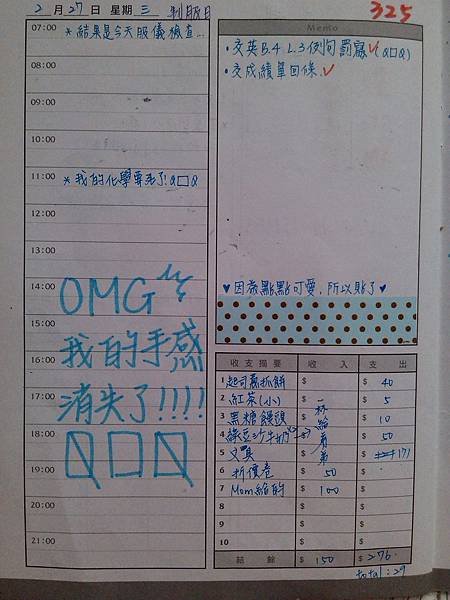 2 月 27 日 星期 三 制服日
325
07:00 *結果是今天服儀檢查...
08:00
09:00
10:00
11:00 *我的化學要死了!Q□Q
12:00
13:00
14:00
15:00
16:00
17:00
18:00
19:00
20:00
21:00
OMG
我的手感
消失了!!!!
Memo
·交英B.4 L.3例句罰寫✓(Q□Q)
·交成績單回條.✓
♥因為點點可愛,所以貼了♥
收支摘要 收入 支出
1 起司蔥抓餅 $ $ 40
2 紅茶(小) $ $ 5
3 黑糖饅頭 $ $ 10
4 綠豆沙牛奶 $ $ 50
一杯給弟弟
5 文具 $ $ 171
6 折價卷 $ 50 $
7 Mom給的 $ 100 $
8 $ $
9 $ $
10 $ $
結餘 $ 150 $ 276.
total:29